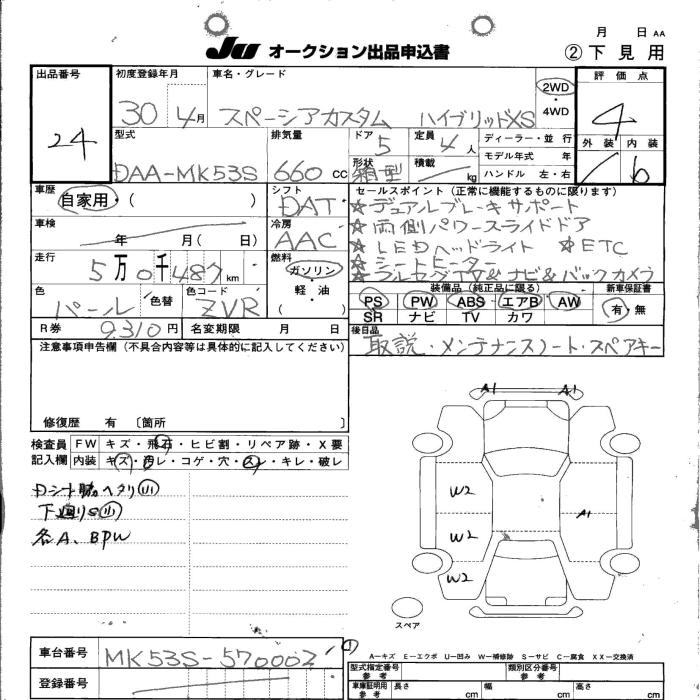 月 日 AA
JU オークション出品申込書 ②下見用
出品番号 24
初度登録年月 30 4月
車名・グレード スペーシアカスタム ハイブリッドXS
2WD・4WD
評価点 4
外装 内装 b
型式 DAA-MK53S
排気量 660 CC
ドア 5
定員 4人
形状 箱型
積載 kg
ディーラー・並行
モデル年式 年
ハンドル 左・右
車歴 自家用・( )
シフト DAT
車検 年 月( 日)
冷房 AAC
走行 5万0千487km
燃料 ガソリン・軽油
( )
色 パール 色替
色コード ZVR
R券 9310円 名変期限 月 日
セールスポイント(正常に機能するものに限ります)
☆デュアルブレーキサポート
☆両側パワースライドドア
☆LEDヘッドライト ☆ETC
☆シートヒーター
☆フルセグTV&ナビ&バックカメラ
装備品(純正品に限る) 新車保証書
PS PW ABS エアB AW 有・無
SR ナビ TV カワ
後日品 取説・メンテナンスノート・スペアキー
注意事項申告欄(不具合内容等は具体的に記入してください)
修復歴 有 〔箇所 〕
検査員記入欄
FW キズ・飛石・ヒビ割・リペア跡・X要
内装 キズ・汚レ・コゲ・穴・スレ・キレ・破レ
Dシート脇ヘタリ小
下廻りS小
各A、BPW
A1 A1
W2
W2 A1
W2
スペア
A-キズ E-エクボ U-凹み W-補修跡 S-サビ C-腐食 XX-交換済
車台番号 MK53S-570002
登録番号
型式指定番号 参考
類別区分番号 参考
車庫証明用 参考 長さ cm 幅 cm 高さ cm